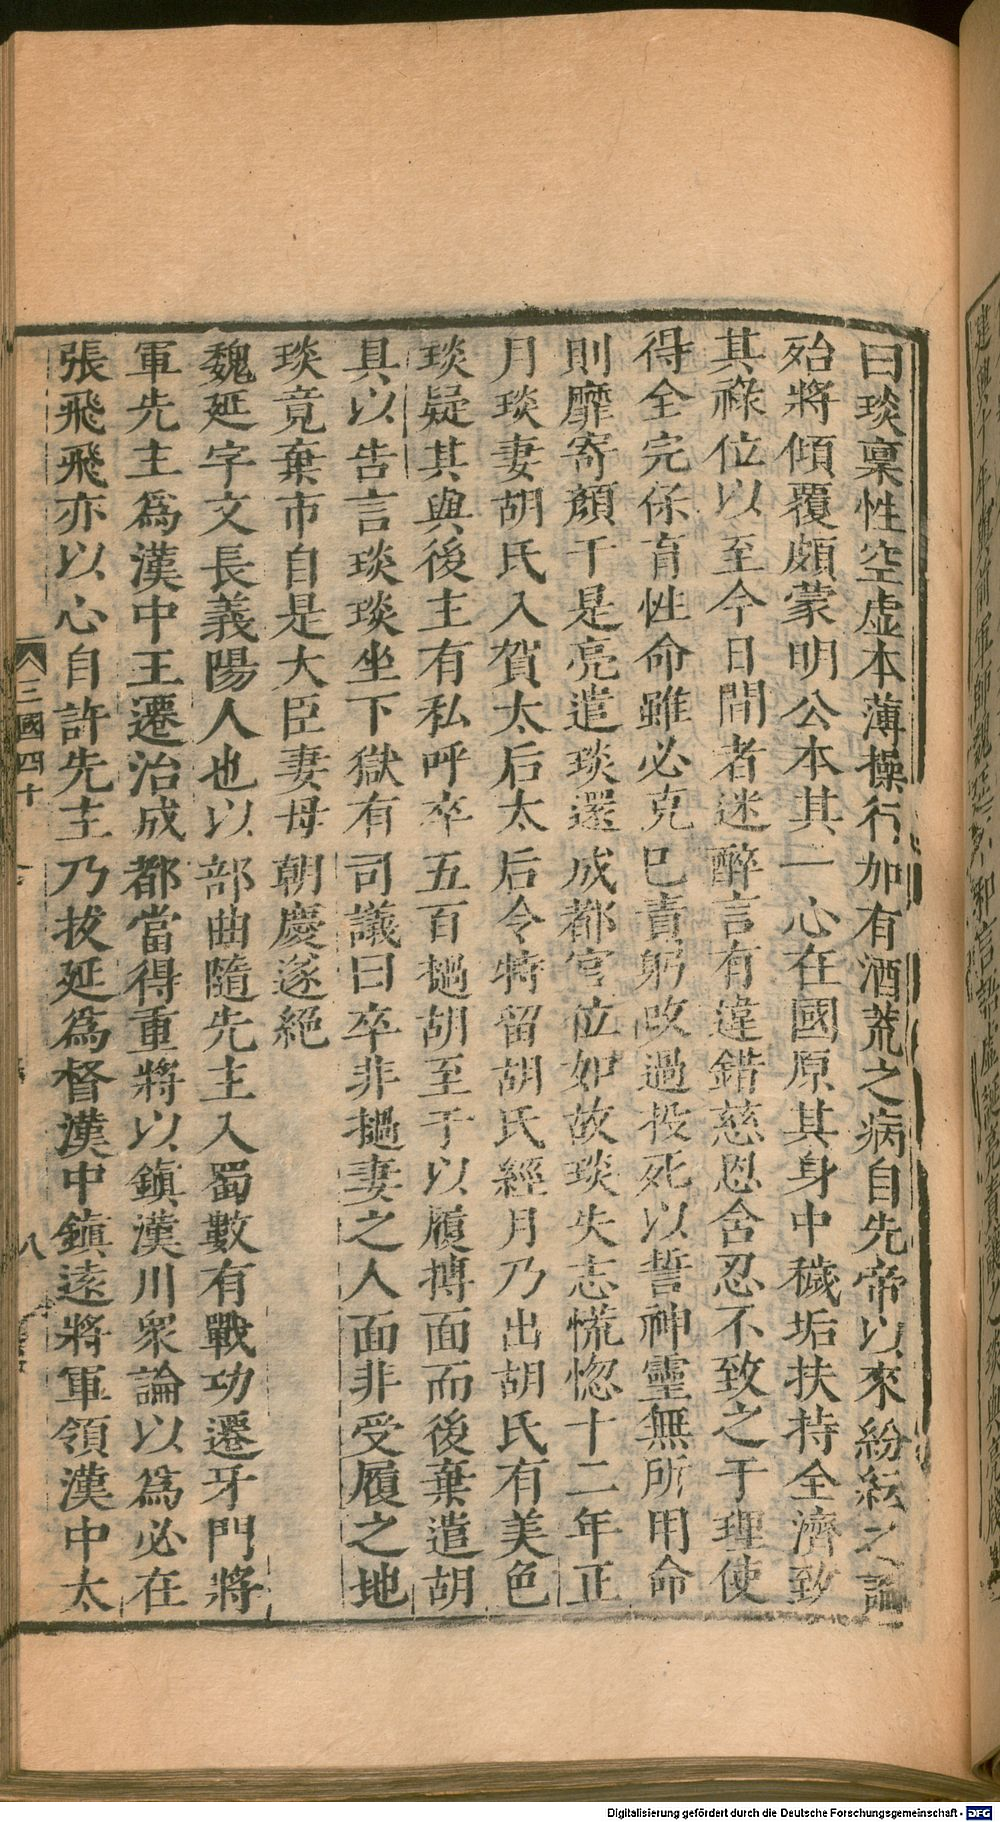 曰琰稟性空虚本薄操行加有酒荒之病自先帝以來紛紜之論
殆將傾覆頗蒙明公本其一心在國原其身中穢垢扶持全濟致
其祿位以至今日間者迷醉言有違錯慈恩含忍不致之于理使
得全完保育性命雖必克巳責躬改過投死以誓神靈無所用命
則靡寄顏于是亮遣琰還成都官位如故琰失志慌惚十二年正
月琰妻胡氏入賀太后太后令特留胡氏經月乃出胡氏有美色
琰疑其與後主有私呼卒五百撾胡至于以履搏面而後棄遣胡
具以告言琰琰坐下獄有司議曰卒非撾妻之人面非受履之地
琰竟棄市自是大臣妻母朝慶遂絕
魏延字文長義陽人也以部曲隨先主入蜀數有戰功遷牙門將
軍先主爲漢中王遷治成都當得重將以鎭漢川衆論以爲必在
張飛飛亦以心自許先主乃拔延爲督漢中鎭遠將軍領漢中太
三國四十
八
Digitalisierung gefördert durch die Deutsche Forschungsgemeinschaft - DFG